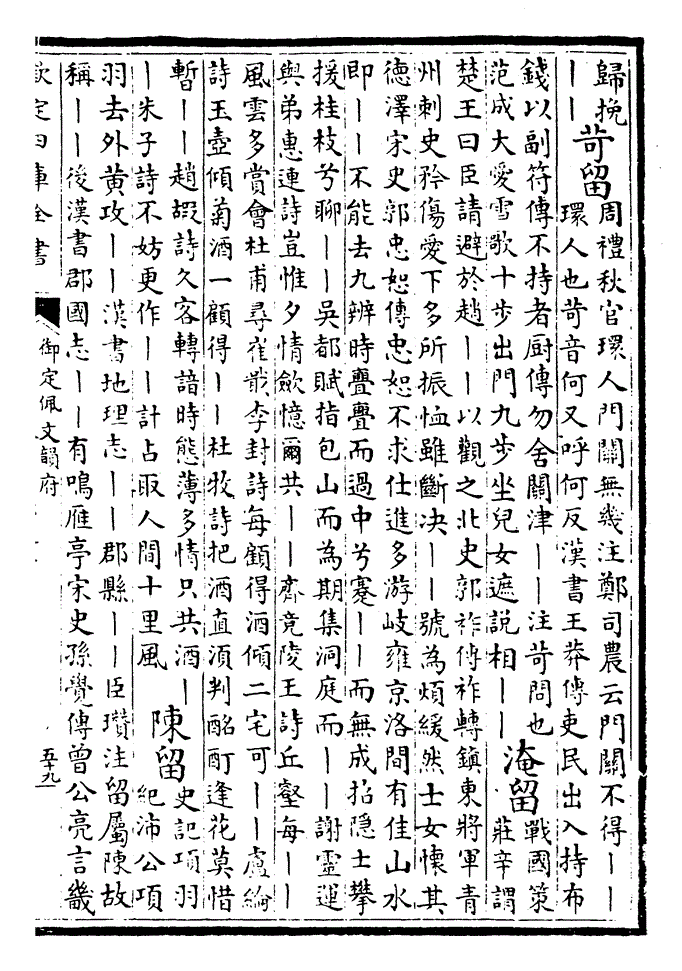 歸挽
｜｜
苛留
周禮秋官環人門關無幾注鄭司農云門關不得｜｜
環人也苛音何又呼何反漢書王莽傳吏民出入持布
錢以副符傳不持者厨傳勿舍關津｜｜注苛問也
范成大愛雪歌十步出門九步坐兒女遮説相｜｜
淹留
戰國策
莊辛謂
楚王曰臣請避於趙｜｜以觀之北史郭祚傳祚轉鎮東將軍青
州刺史矜傷愛下多所振恤雖斷决｜｜號為煩緩然士女懷其
德澤宋史郭忠恕傳忠恕不求仕進多游岐雍京洛間有佳山水
即｜｜不能去九辨時亹亹而過中兮蹇｜｜而無成招隱士攀
援桂枝兮聊｜｜吳都賦指包山而為期集洞庭而｜｜謝靈運
與弟惠連詩豈惟夕情歛憶爾共｜｜齊竟陵王詩丘壑每｜｜
風雲多賞會杜甫尋崔戢李封詩每顧得酒傾二宅可｜｜盧綸
詩玉壺傾菊酒一顧得｜｜杜牧詩把酒直湏判酩酊逢花莫惜
暫｜｜趙嘏詩久客轉諳時態薄多情只共酒｜
｜朱子詩不妨更作｜｜計占取人間十里風
陳留
史記項羽
紀沛公項
羽去外黄攻｜｜漢書地理志｜｜郡縣｜｜臣瓚注留屬陳故
稱｜｜後漢書郡國志｜｜有鳴雁亭宋史孫覺傳曾公亮言畿
欽定四庫全書
御定佩文韻府
五十九